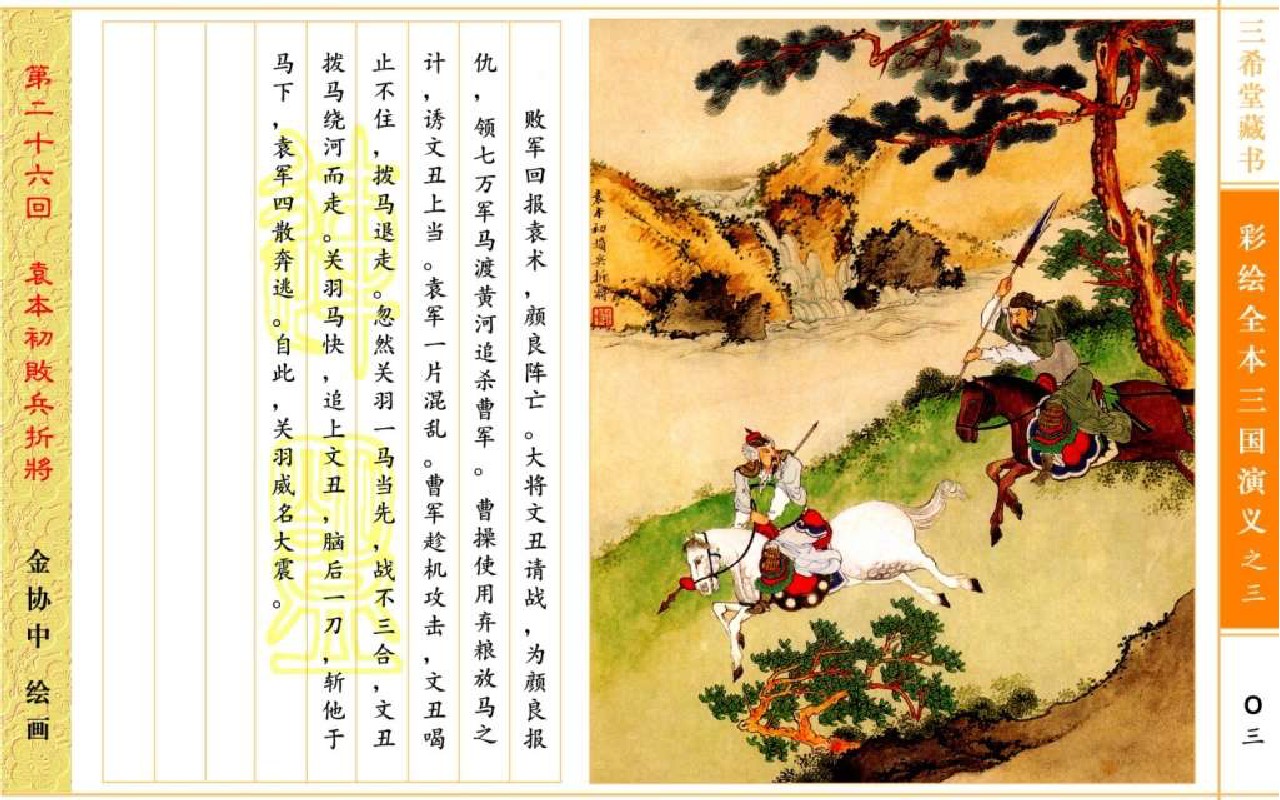 三希堂藏书
彩绘全本三国演义之三
〇三
袁本初损兵折将
败军回报袁术，颜良阵亡。大将文丑请战，为颜良报
仇，领七万军马渡黄河追杀曹军。曹操使用弃粮放马之
计，诱文丑上当。袁军一片混乱。曹军趁机攻击，文丑喝
止不住，拨马退走。忽然关羽一马当先，战不三合，文丑
拨马绕河而走。关羽马快，追上文丑，脑后一刀，斩他于
马下，袁军四散奔逃。自此，关羽威名大震。
第二十六回 袁本初败兵折將
金协中 绘画